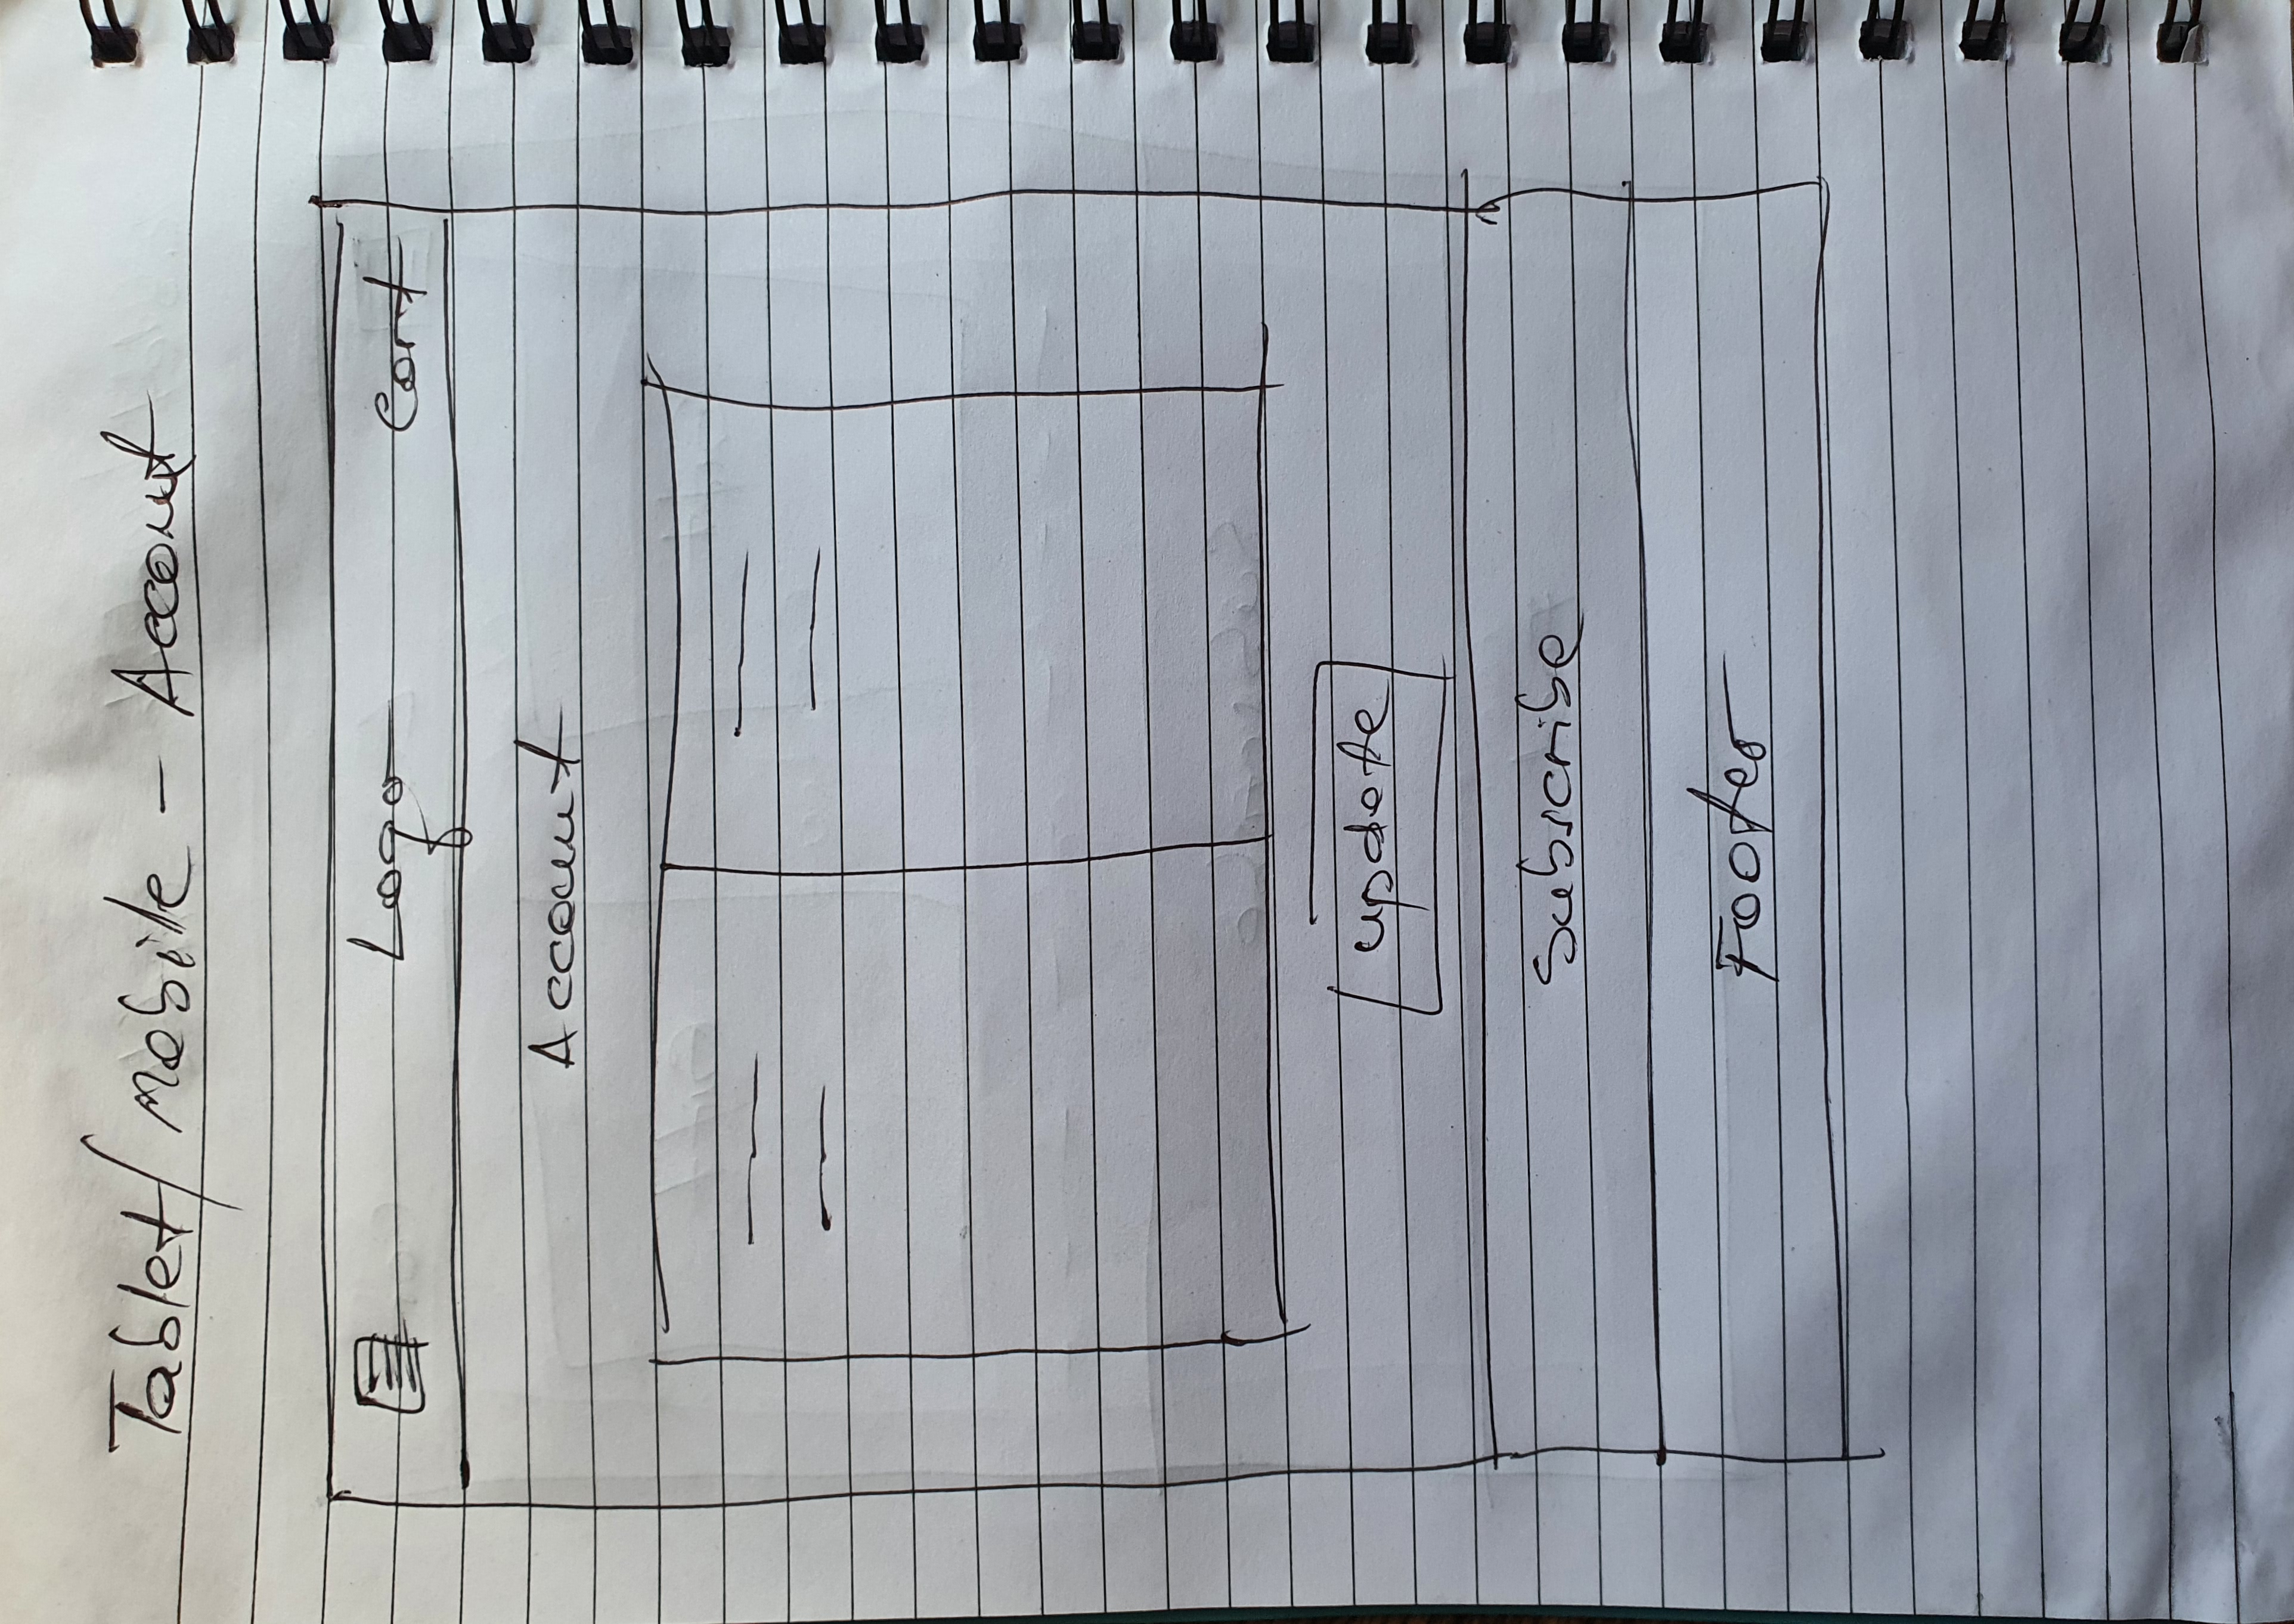 Tablet/Mobile - Account
Logo Cart
Account
update
Subscribe
Footer